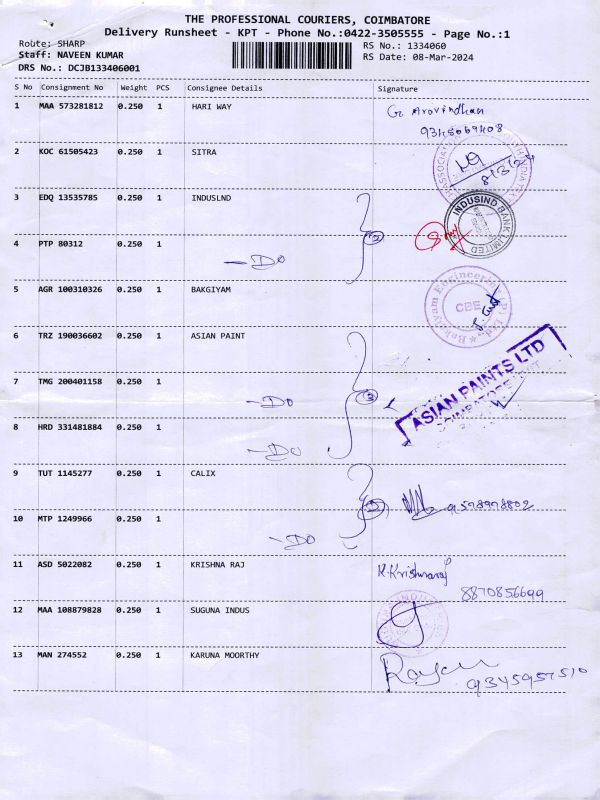 THE PROFESSIONAL COURIERS, COIMBATORE
Delivery Runsheet - KPT - Phone No.:0422-3505555 - Page No.:1
Route: SHARP
RS No.: 1334060
Staff: NAVEEN KUMAR
RS Date: 08-Mar-2024
DRS No.: DCJB133406001
S No Consignment No Weight PCS Consignee Details Signature
1 MAA 573281812 0.250 1 HARI WAY G. Aravindhan
2 KOC 61505423 0.250 1 SITRA 8/3/24
3 EDQ 13535785 0.250 1 INDUSLND INDUSIND BANK LIMITED
4 PTP 80312 0.250 1 - DO 2
5 AGR 100310326 0.250 1 BAKGIYAM Bakgiyam Engineering (P) Ltd. CBE
6 TRZ 190036602 0.250 1 ASIAN PAINT ASIAN PAINTS LTD
7 TMG 200401158 0.250 1 - DO 3
8 HRD 331481884 0.250 1 - DO
9 TUT 1145277 0.250 1 CALIX 9578978802
10 MTP 1249966 0.250 1 - DO 2
11 ASD 5022082 0.250 1 KRISHNA RAJ K.Krishnaraj
8870856699
12 MAA 108879828 0.250 1 SUGUNA INDUS
13 MAN 274552 0.250 1 KARUNA MOORTHY
9345957510